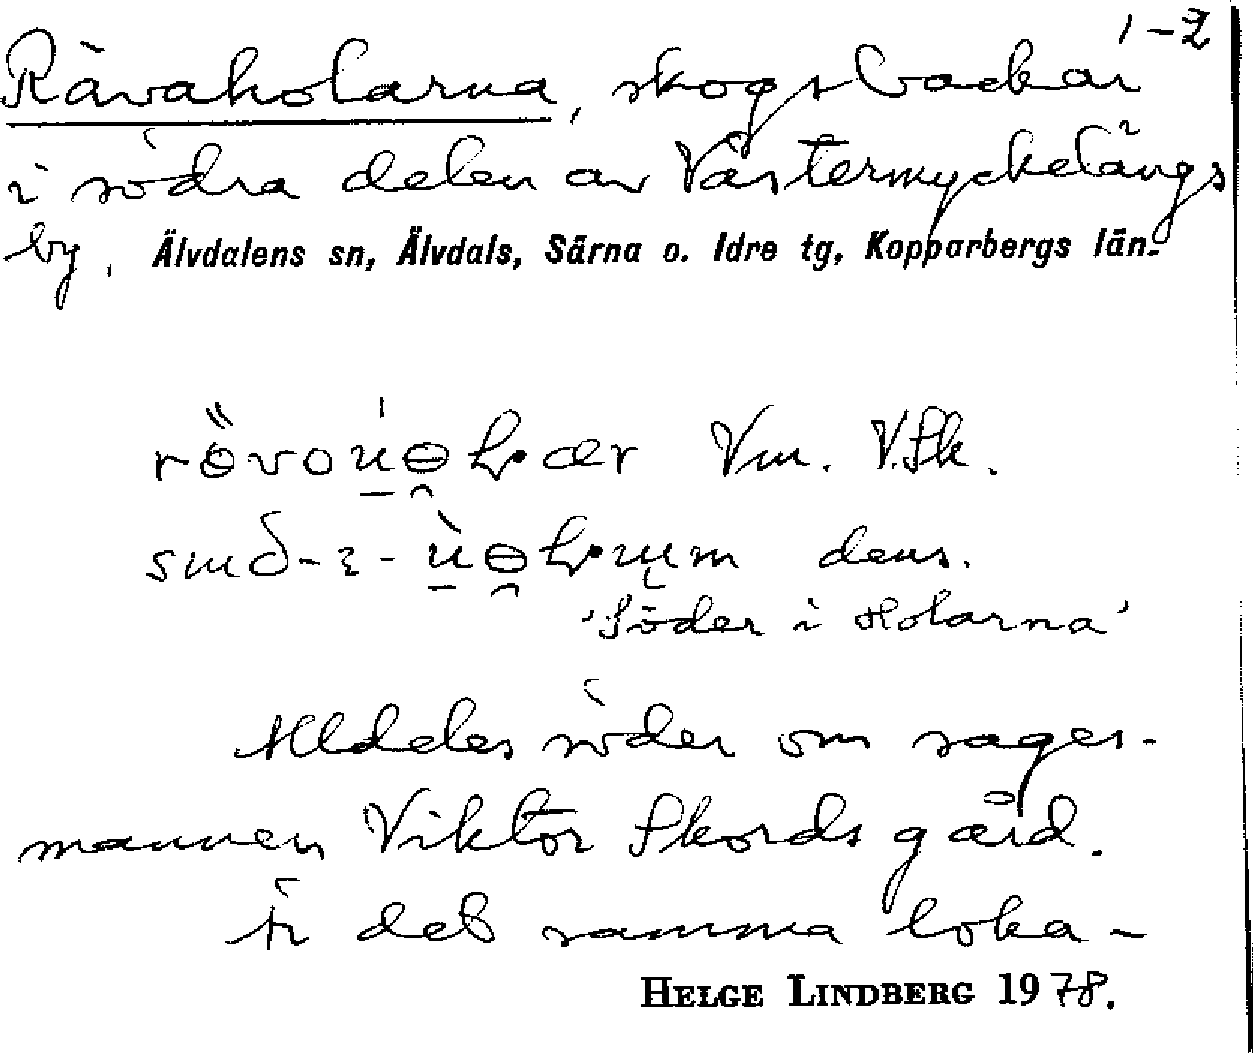 1-2
Rävaholarna, skogsbackar
i södra delen av Västermyckelängs
by. Älvdalens sn, Älvdals, Särna o. Idre tg, Kopparbergs län.
Vm. V.Sk.
dens.
'Söder i Holarna'
Alldeles söder om sages-
mannen Viktor Skords gård.
Är det samma loka-
HELGE LINDBERG 1978.